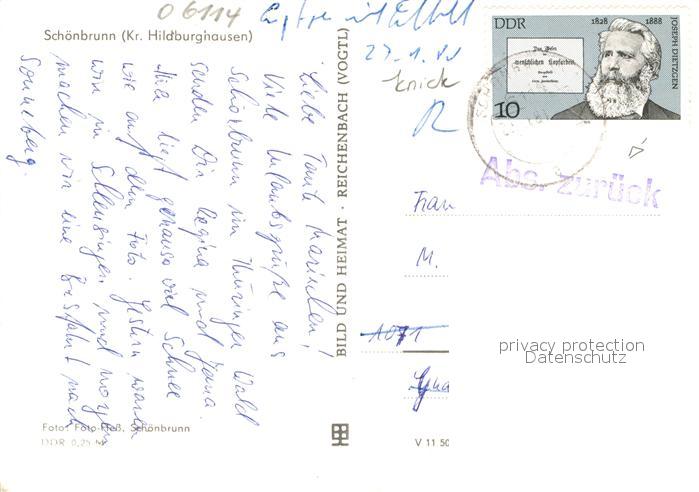 06114
Schönbrunn (Kr. Hildburghausen)
27.1.
knick
R
Liebe Tante Mariechen!
Viele Urlaubsgrüße aus
Schönbrunn im Thüringer Wald
senden Dir Regina und Jana.
Hier liegt genauso viel Schnee
wie auf dem Foto. Gestern waren
wir in Schleusingen und morgen
machen wir eine Busfahrt nach
Sonneberg.
BILD UND HEIMAT · REICHENBACH (VOGTL)
DDR 1828 1888
JOSEPH DIETZGEN
Das Wesen
der
menschlichen Kopfarbeit.
10
Abs. zurück
Frau
M.
1071
privacy protection
Datenschutz
Foto: Foto-Heß, Schönbrunn
DDR 0,25 M
V 11 50